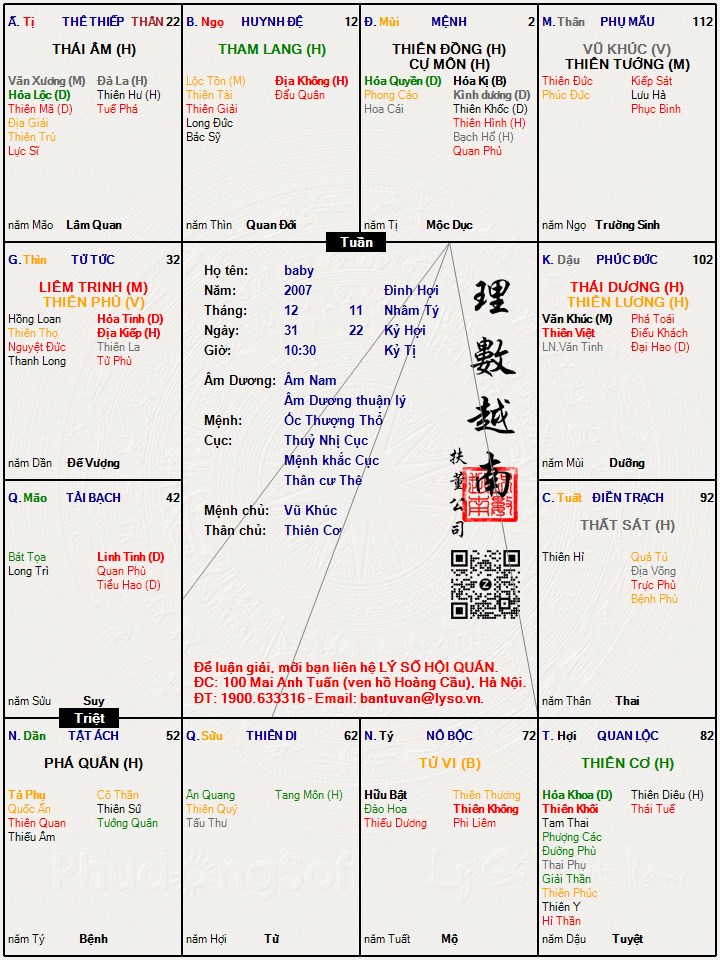 Ấ. Tị THÊ THIẾP THÂN 22
THÁI ÂM (H)
Văn Xương (M) Đà La (H)
Hóa Lộc (D) Thiên Hư (H)
Thiên Mã (D) Tuế Phá
Địa Giải
Thiên Trù
Lực Sĩ
năm Mão Lâm Quan
B. Ngọ HUYNH ĐỆ 12
THAM LANG (H)
Lộc Tồn (M) Địa Không (H)
Thiên Tài Đẩu Quân
Thiên Giải
Long Đức
Bác Sỹ
năm Thìn Quan Đới
Đ. Mùi MỆNH 2
THIÊN ĐỒNG (H)
CỰ MÔN (H)
Hóa Quyền (D) Hóa Kị (B)
Phong Cáo Kình dương (D)
Hoa Cái Thiên Khốc (D)
Thiên Hình (H)
Bạch Hổ (H)
Quan Phủ
năm Tị Mộc Dục
M. Thân PHỤ MẪU 112
VŨ KHÚC (V)
THIÊN TƯỚNG (M)
Thiên Đức Kiếp Sát
Phúc Đức Lưu Hà
Phục Binh
năm Ngọ Trường Sinh
Tuần
G. Thìn TỬ TỨC 32
LIÊM TRINH (M)
THIÊN PHỦ (V)
Hồng Loan Hỏa Tinh (D)
Thiên Thọ Địa Kiếp (H)
Nguyệt Đức Thiên La
Thanh Long Tử Phù
năm Dần Đế Vượng
Họ tên: baby
Năm: 2007 Đinh Hợi
Tháng: 12 11 Nhâm Tý
Ngày: 31 22 Kỷ Hợi
Giờ: 10:30 Kỷ Tị
Âm Dương: Âm Nam
Âm Dương thuận lý
Mệnh: Ốc Thượng Thổ
Cục: Thuỷ Nhị Cục
Mệnh khắc Cục
Thân cư Thê
Mệnh chủ: Vũ Khúc
Thân chủ: Thiên Cơ
理數越南
扶董公司
Để luận giải, mời bạn liên hệ LÝ SỐ HỘI QUÁN.
ĐC: 100 Mai Anh Tuấn (ven hồ Hoàng Cầu), Hà Nội.
ĐT: 1900.633316 - Email: bantuvan@lyso.vn.
K. Dậu PHÚC ĐỨC 102
THÁI DƯƠNG (H)
THIÊN LƯƠNG (H)
Văn Khúc (M) Phá Toái
Thiên Việt Điếu Khách
LN.Văn Tinh Đại Hao (D)
năm Mùi Dưỡng
Q. Mão TÀI BẠCH 42
Bát Tọa Linh Tinh (D)
Long Trì Quan Phù
Tiểu Hao (D)
năm Sửu Suy
C. Tuất ĐIỀN TRẠCH 92
THẤT SÁT (H)
Thiên Hỉ Quả Tú
Địa Võng
Trực Phù
Bệnh Phù
năm Thân Thai
Triệt
N. Dần TẬT ÁCH 52
PHÁ QUÂN (H)
Tả Phụ Cô Thần
Quốc Ấn Thiên Sứ
Thiên Quan Tướng Quân
Thiếu Âm
năm Tý Bệnh
Q. Sửu THIÊN DI 62
Ân Quang Tang Môn (H)
Thiên Quý
Tấu Thư
năm Hợi Tử
N. Tý NÔ BỘC 72
TỬ VI (B)
Hữu Bật Thiên Thương
Đào Hoa Thiên Không
Thiếu Dương Phi Liêm
năm Tuất Mộ
T. Hợi QUAN LỘC 82
THIÊN CƠ (H)
Hóa Khoa (D) Thiên Diêu (H)
Thiên Khôi Thái Tuế
Tam Thai
Phượng Các
Đường Phù
Thai Phụ
Giải Thần
Thiên Phúc
Thiên Y
Hỉ Thần
năm Dậu Tuyệt